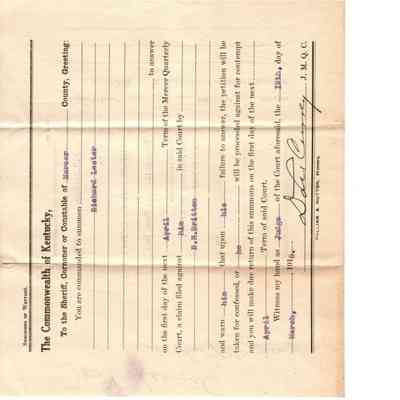 SUMMONS OR WARRANT.
The Commonwealth of Kentucky,
To the Sheriff, Coroner or Constable of Mercer County, Greeting:
You are commanded to summon
Richard Lester
to answer
on the first day of the next April Term of the Mercer Quarterly
Court, a claim filed against him in said Court by
and warn him that upon his failure to answer, the petition will be
taken for confessed, or he will be proceeded against for contempt
and you will make due return of this summons on the first day of the next
April Term of said Court.
Witness my hand as Judge of the Court aforesaid, the day of
March, 191
J. M. Q. C.